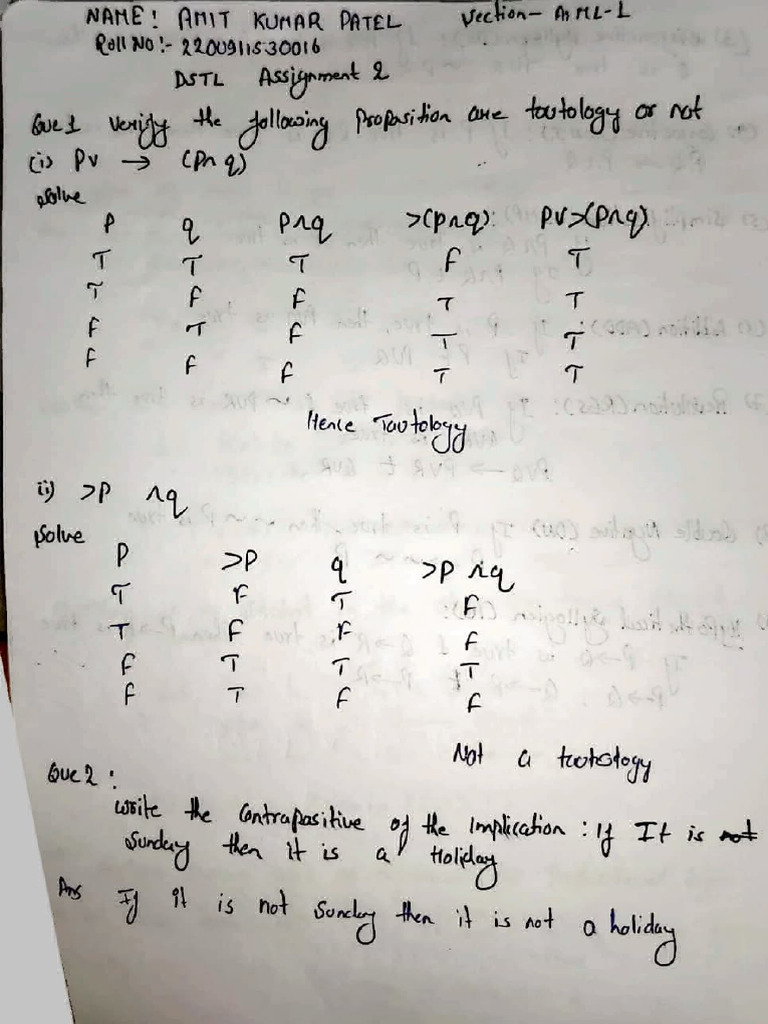 NAME: AMIT KUMAR PATEL Section - AIML-1
Roll No:- 2200911530016
DSTL Assignment 2
Que 1 Verify the following Proposition are toutology or not
(i) PV → (P∩q)
Solve
P q P∧q >(p∧q) PV>(P∩q)
T T T F T
T F F T T
F T F T T
F F F T T
Hence Tautology
ii) >P ∧q
Solve
P >P q >P ∧q
T F T F
T F F F
F T T T
F T F F
Not a tautology
Que 2:
Write the Contrapasitive of the Implication: if It is not
Sunday then it is a Holiday
Ans If it is not Sunday then it is not a holiday